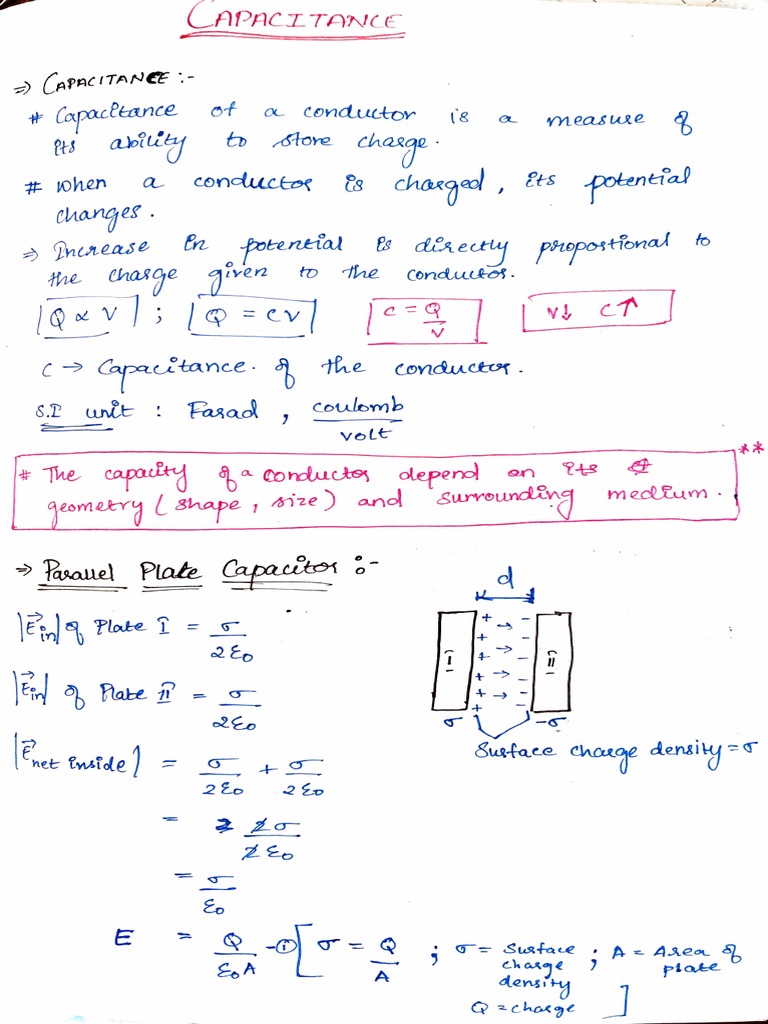 CAPACITANCE
⇒ CAPACITANCE :-
# Capacitance of a conductor is a measure of
its ability to store charge.
# When a conductor is charged, its potential
changes.
⇒ Increase in potential is directly proportional to
the charge given to the conductor.
Q ∝ V ; Q = CV C = Q/V V↓ C↑
C → Capacitance of the conductor.
S.I unit : Farad, coulomb/volt
# The capacity of a conductor depend on its **
geometry (shape, size) and surrounding medium.
⇒ Parallel Plate Capacitor :-
d
|E⃗in| of Plate I = σ/2ε₀
|E⃗in| of Plate II = σ/2ε₀
I + + + + + + → → → → - - - - - - II
σ -σ
Surface charge density = σ
|E⃗net inside| = σ/2ε₀ + σ/2ε₀
= 2σ/2ε₀
= σ/ε₀
E = Q/ε₀A -① [σ = Q/A ; σ = Surface charge density ; A = Area of plate
Q = charge ]